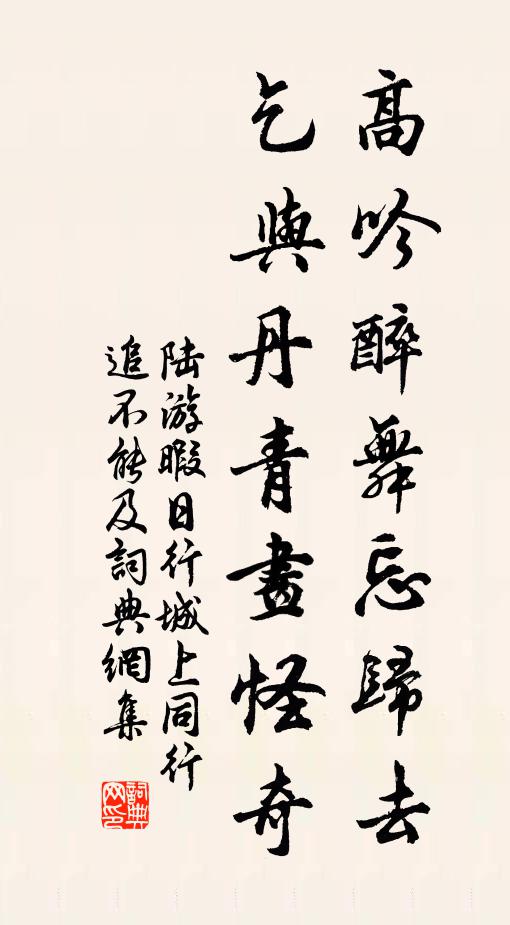 高吟醉舞忘歸去
乞與丹青畫怪奇
陆游暇日行城上同行
追不能及詞典網集
詞典网印